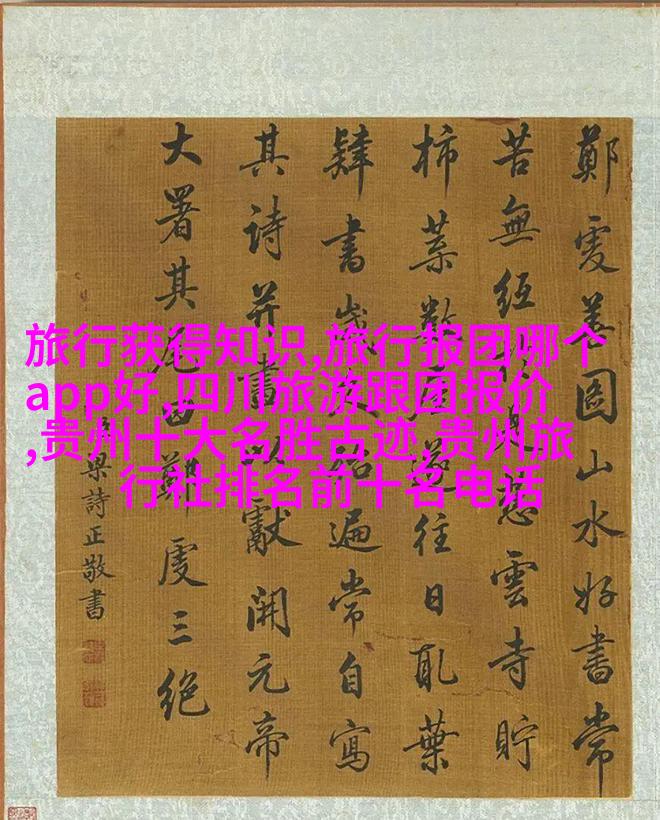 旅行获得知识,旅行报团哪个
app好,四川旅游跟团报价
,贵州十大名胜古迹,贵州旅
行社排名前十名电话
鄭虔善圖山水好書常
苦無紙於是慈雲寺貯
柿葉數屋遂往日取葉
肄書歲久殆遍常自寫
其詩并書以獻開元帝
大署其尾曰鄭虔三絕
臣梁詩正敬書